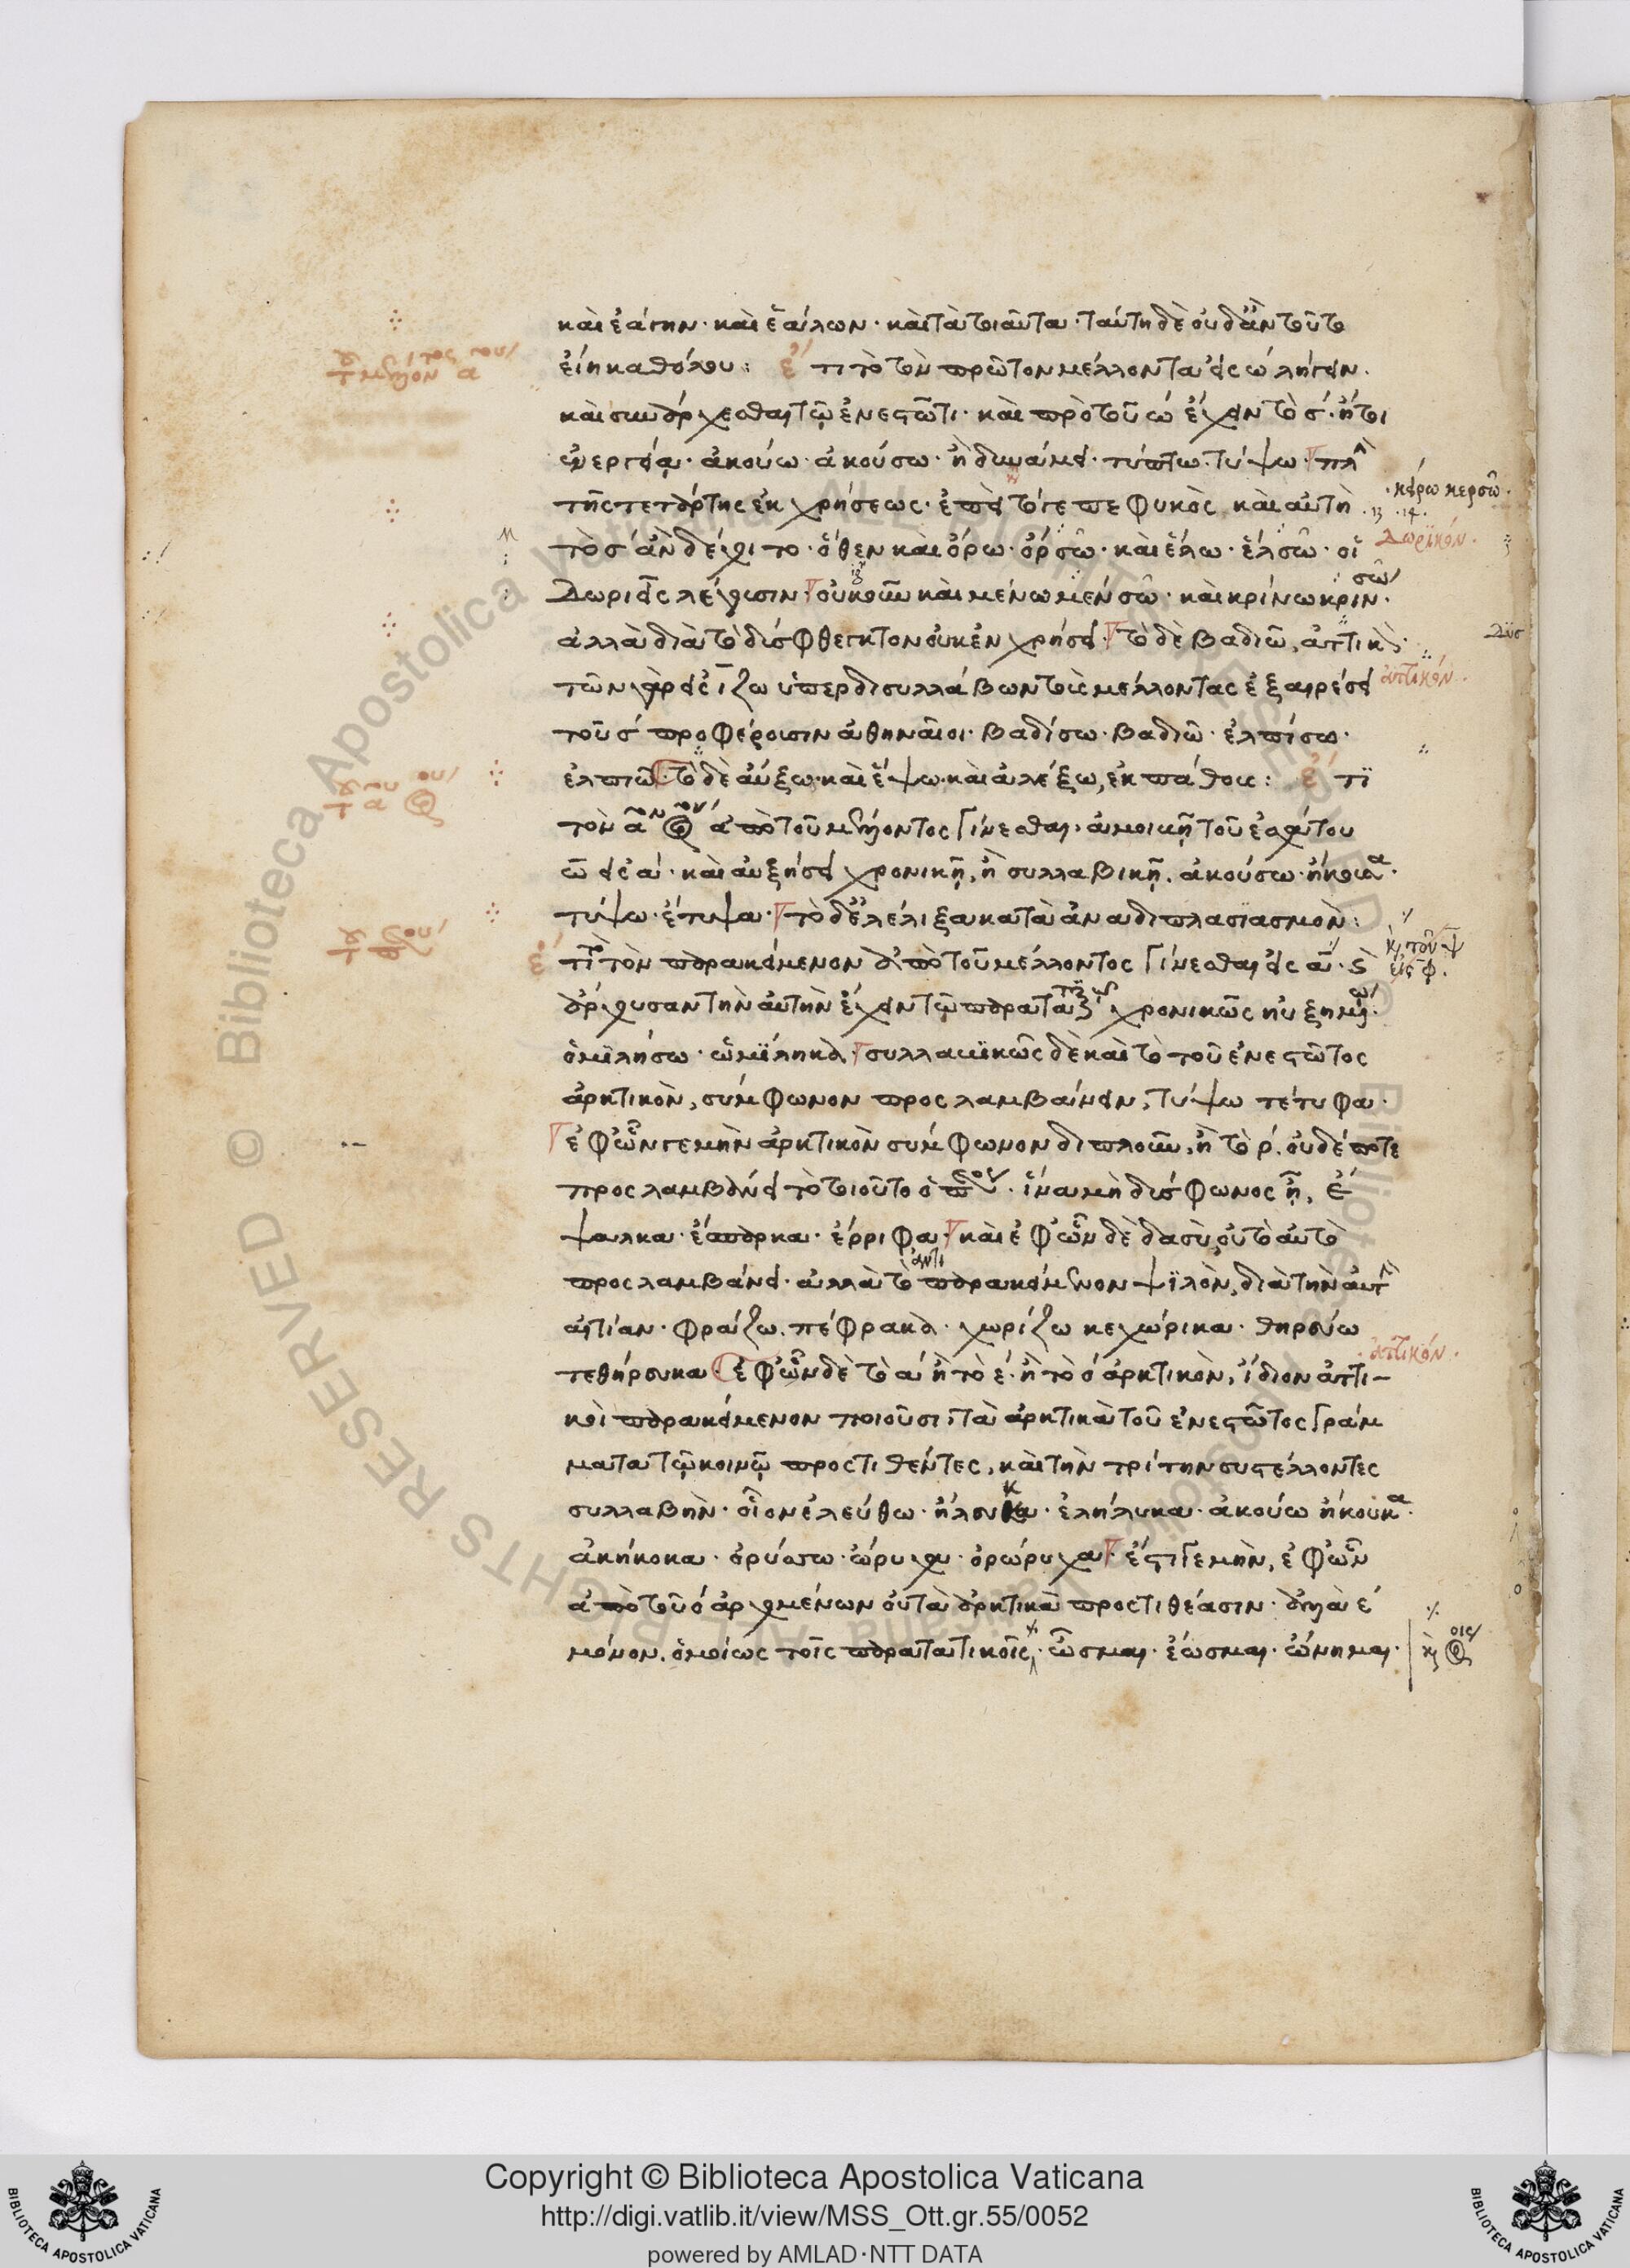 καὶ ἐάγην· καὶ ἑάλων· καὶ τὰ τοιαῦτα· ταύτη δὲ οὐδ' ἂν τοῦτο
εἴη καθόλου: ἔτι τὸ τὸν πρῶτον μέλλοντα εἰς ω λήγειν·
καὶ συνάρχεσθαι τῶ ἐνεστῶτι· καὶ πρὸ τοῦ ω ἔχειν τὸ σ· ἤτοι
ἐνεργεία· ἀκούω· ἀκούσω· ἢ δυνάμει· τύπτω· τύψω· πλὴν
τῆς τετάρτης ἐκ χρήσεως· ἐπεὶ τό γε πεφυκὸς καὶ αὐτὴ
·κείρω κερσῶ·
τὸ σ ἂν δέχοιτο· ὅθεν καὶ ὄρω· ὀρσῶ· καὶ ἕλω· ἑλσῶ· οἱ
Δωρικόν·
Δωριεῖς λέγουσιν· οὐκοῦν καὶ μένω μένσῶ· καὶ κρίνω κρινσῶ·
ἀλλὰ διὰ τὸ δύσφθεγκτον οὐκ ἐν χρήσει· τὸ δὲ βαδιῶ, ἀττικὸν·
τῶν γὰρ εἰς ίζω ὑπερδισυλλάβων τοὺς μέλλοντας ἐξαιρέσει
ἀττικόν·
τοῦ σ προφέρουσιν ἀθηναῖοι· βαδίσω· βαδιῶ· ἐλπίσω·
ἐλπιῶ· τὸ δὲ αὔξω· καὶ ἕψω· καὶ ἀλέξω, ἐκ πάθους: ἔτι
τὸν ἀόριστον ἀπὸ τοῦ μέλλοντος γίνεσθαι· ἀμοιβῆ τοῦ ἐσχάτου
ω εἰς α· καὶ αὐξήσει χρονικῆ, ἢ συλλαβικῆ. ἀκούσω· ἤκουσα·
τύψω· ἔτυψα· τὸ δὲ ἐλέλιξα κατὰ ἀναδιπλασιασμὸν:
ἔτι τὸν παρακείμενον ἀπὸ τοῦ μέλλοντος γίνεσθαι εἰς α· καὶ
κ τὸν ψ
εἰς φ·
ἄρχουσαν τὴν αὐτὴν ἔχειν τῶ παρατατικῶ χρονικῶς ηὐξημένω·
ὁμιλήσω· ὡμίληκα· συλλαβικῶς δὲ καὶ τὸ τοῦ ἐνεστῶτος
ἀρκτικὸν, σύμφωνον προσλαμβάνειν, τύψω τέτυφα·
ἐφ' ὧν γε μὴν ἀρκτικὸν σύμφωνον διπλοῦν, ἢ τὸ ρ. οὐδέποτε
προσλαμβάνει τὸ τοιοῦτο ὁ παρακείμενος· ἵνα μὴ δύσφωνος ῆ, ἔ
ψαλκα· ἔσπαρκα· ἔρριφα· καὶ ἐφ' ὧν δὲ δασὺ, οὐ τὸ αὐτὸ
προσλαμβάνει· ἀλλὰ τὸ ἀντιπαρακείμενον ψιλὸν, διὰ τὴν αὐτὴν
αἰτίαν· φράζω. πέφρακα· χωρίζω κεχώρικα· θηρεύω
τεθήρευκα· ἐφ' ὧν δὲ τὸ α ἢ τὸ ε· ἢ τὸ ο ἀρκτικὸν, ἴδιον ἀττι-
·ἀττικόν·
κοὶ παρακείμενον ποιοῦσι, τὰ ἀρκτικὰ τοῦ ἐνεστῶτος γράμ
ματα τῶ κοινῶ προστιθέντες, καὶ τὴν τρίτην συστέλλοντες
συλλαβὴν· οἷον ἐλεύθω· ἤλευκα· ἐλήλυκα· ἀκούω ἤκουκα·
ἀκήκοκα· ὀρύσσω· ὤρυχα· ὀρώρυχα· ἔστι γε μὴν, ἐφ' ὧν
ἀπὸ τοῦ ο ἀρχομένων οὐ τὰ ἀρκτικὰ προστιθέασιν· ἀλλὰ ε
μόνον. ὁμοίως τοῖς παρατατικοῖς· ὦσμαι· ἔωσμαι· ὤνημαι·
Copyright © Biblioteca Apostolica Vaticana
http://digi.vatlib.it/view/MSS_Ott.gr.55/0052
powered by AMLAD·NTT DATA
BIBLIOTECA APOSTOLICA VATICANA
BIBLIOTECA APOSTOLICA VATICANA